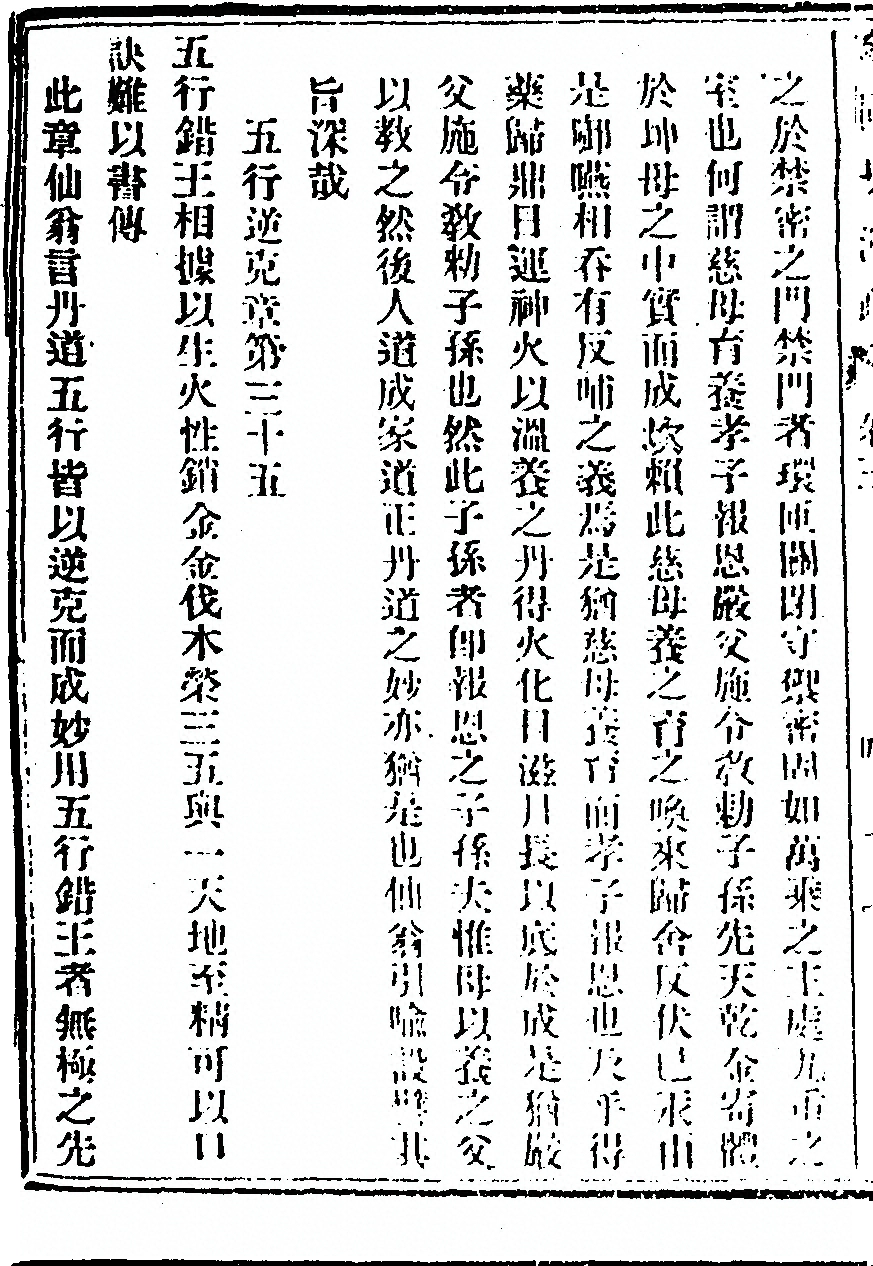 之於禁密之門禁門者環匝關閉守禦密固如萬乘之主處九重之
室也何謂慈母育養孝子報恩嚴父施令教勅子孫先天乾金寄體
於坤母之中實而成坎賴此慈母養之育之喚來歸舍反伏已汞由
是啣嚥相吞有反哺之義焉是猶慈母養育而孝子報恩也及乎得
藥歸鼎日運神火以溫養之丹得火化日滋月長以底於成是猶嚴
父施令教勅子孫也然此子孫者卽報恩之子孫夫惟母以養之父
以教之然後人道成家道正丹道之妙亦猶是也仙翁引喻設譬其
旨深哉
五行逆克章第三十五
五行錯王相據以生火性銷金金伐木榮三五與一天地至精可以口
訣難以書傳
此章仙翁言丹道五行皆以逆克而成妙用五行錯王者無極之先